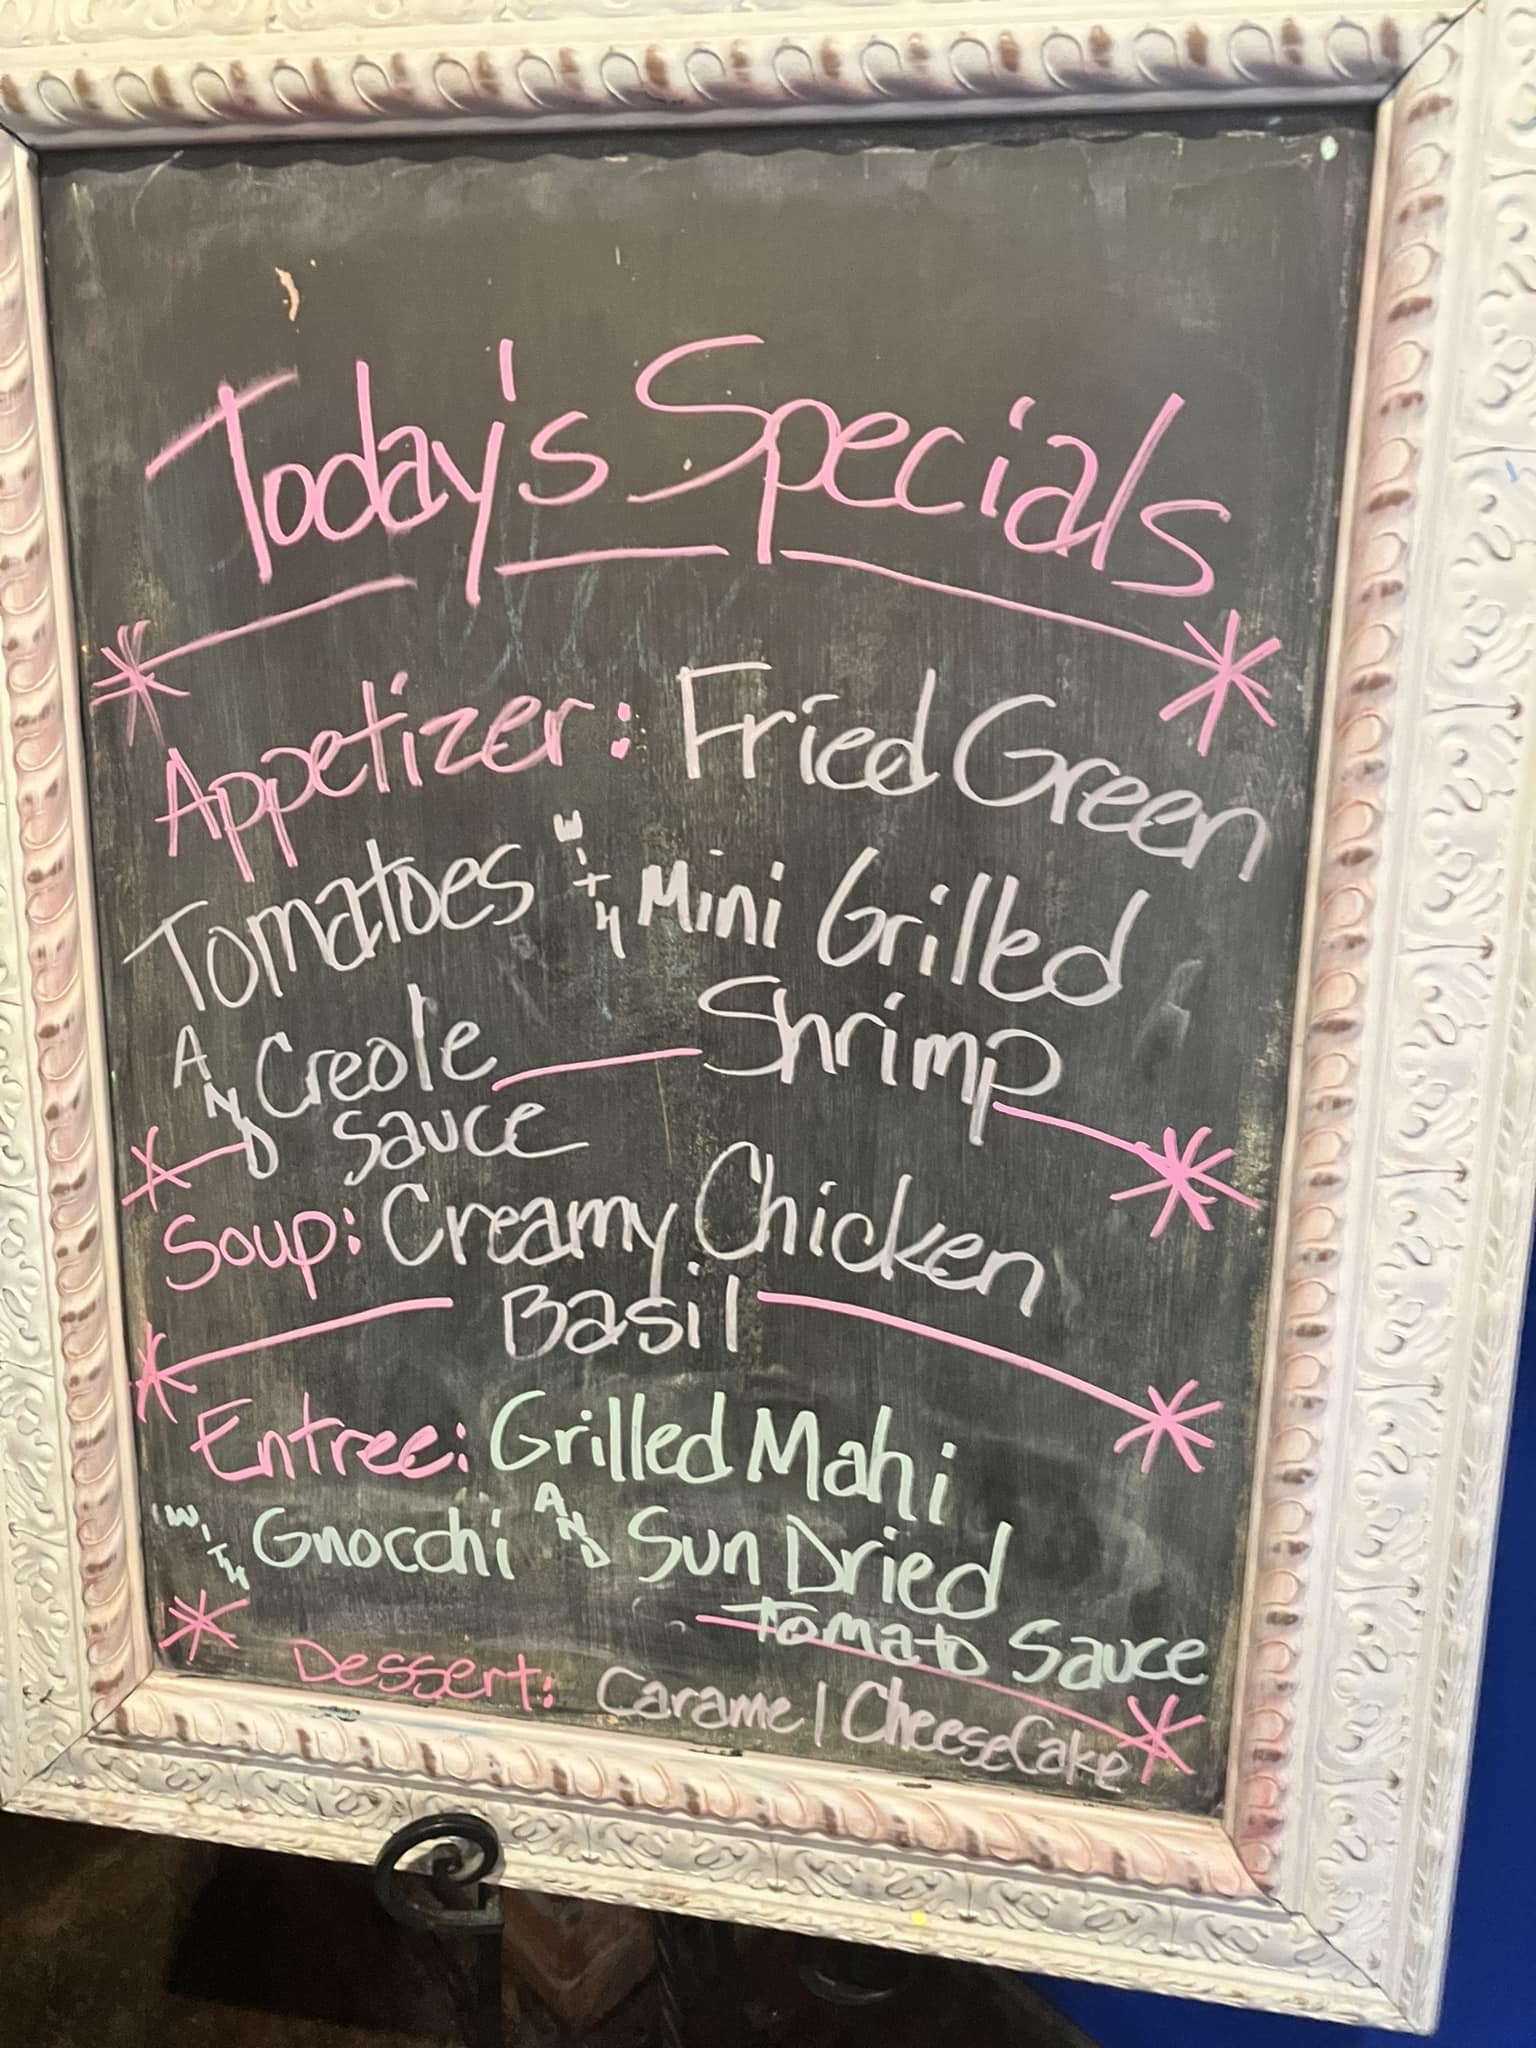 Today's Specials
Appetizer: Fried Green
Tomatoes WITH Mini Grilled
Shrimp
AND Creole
Sauce
Soup: Creamy Chicken
Basil
Entree: Grilled Mahi
WITH Gnocchi AND Sun Dried
Tomato Sauce
Dessert: Caramel CheeseCake